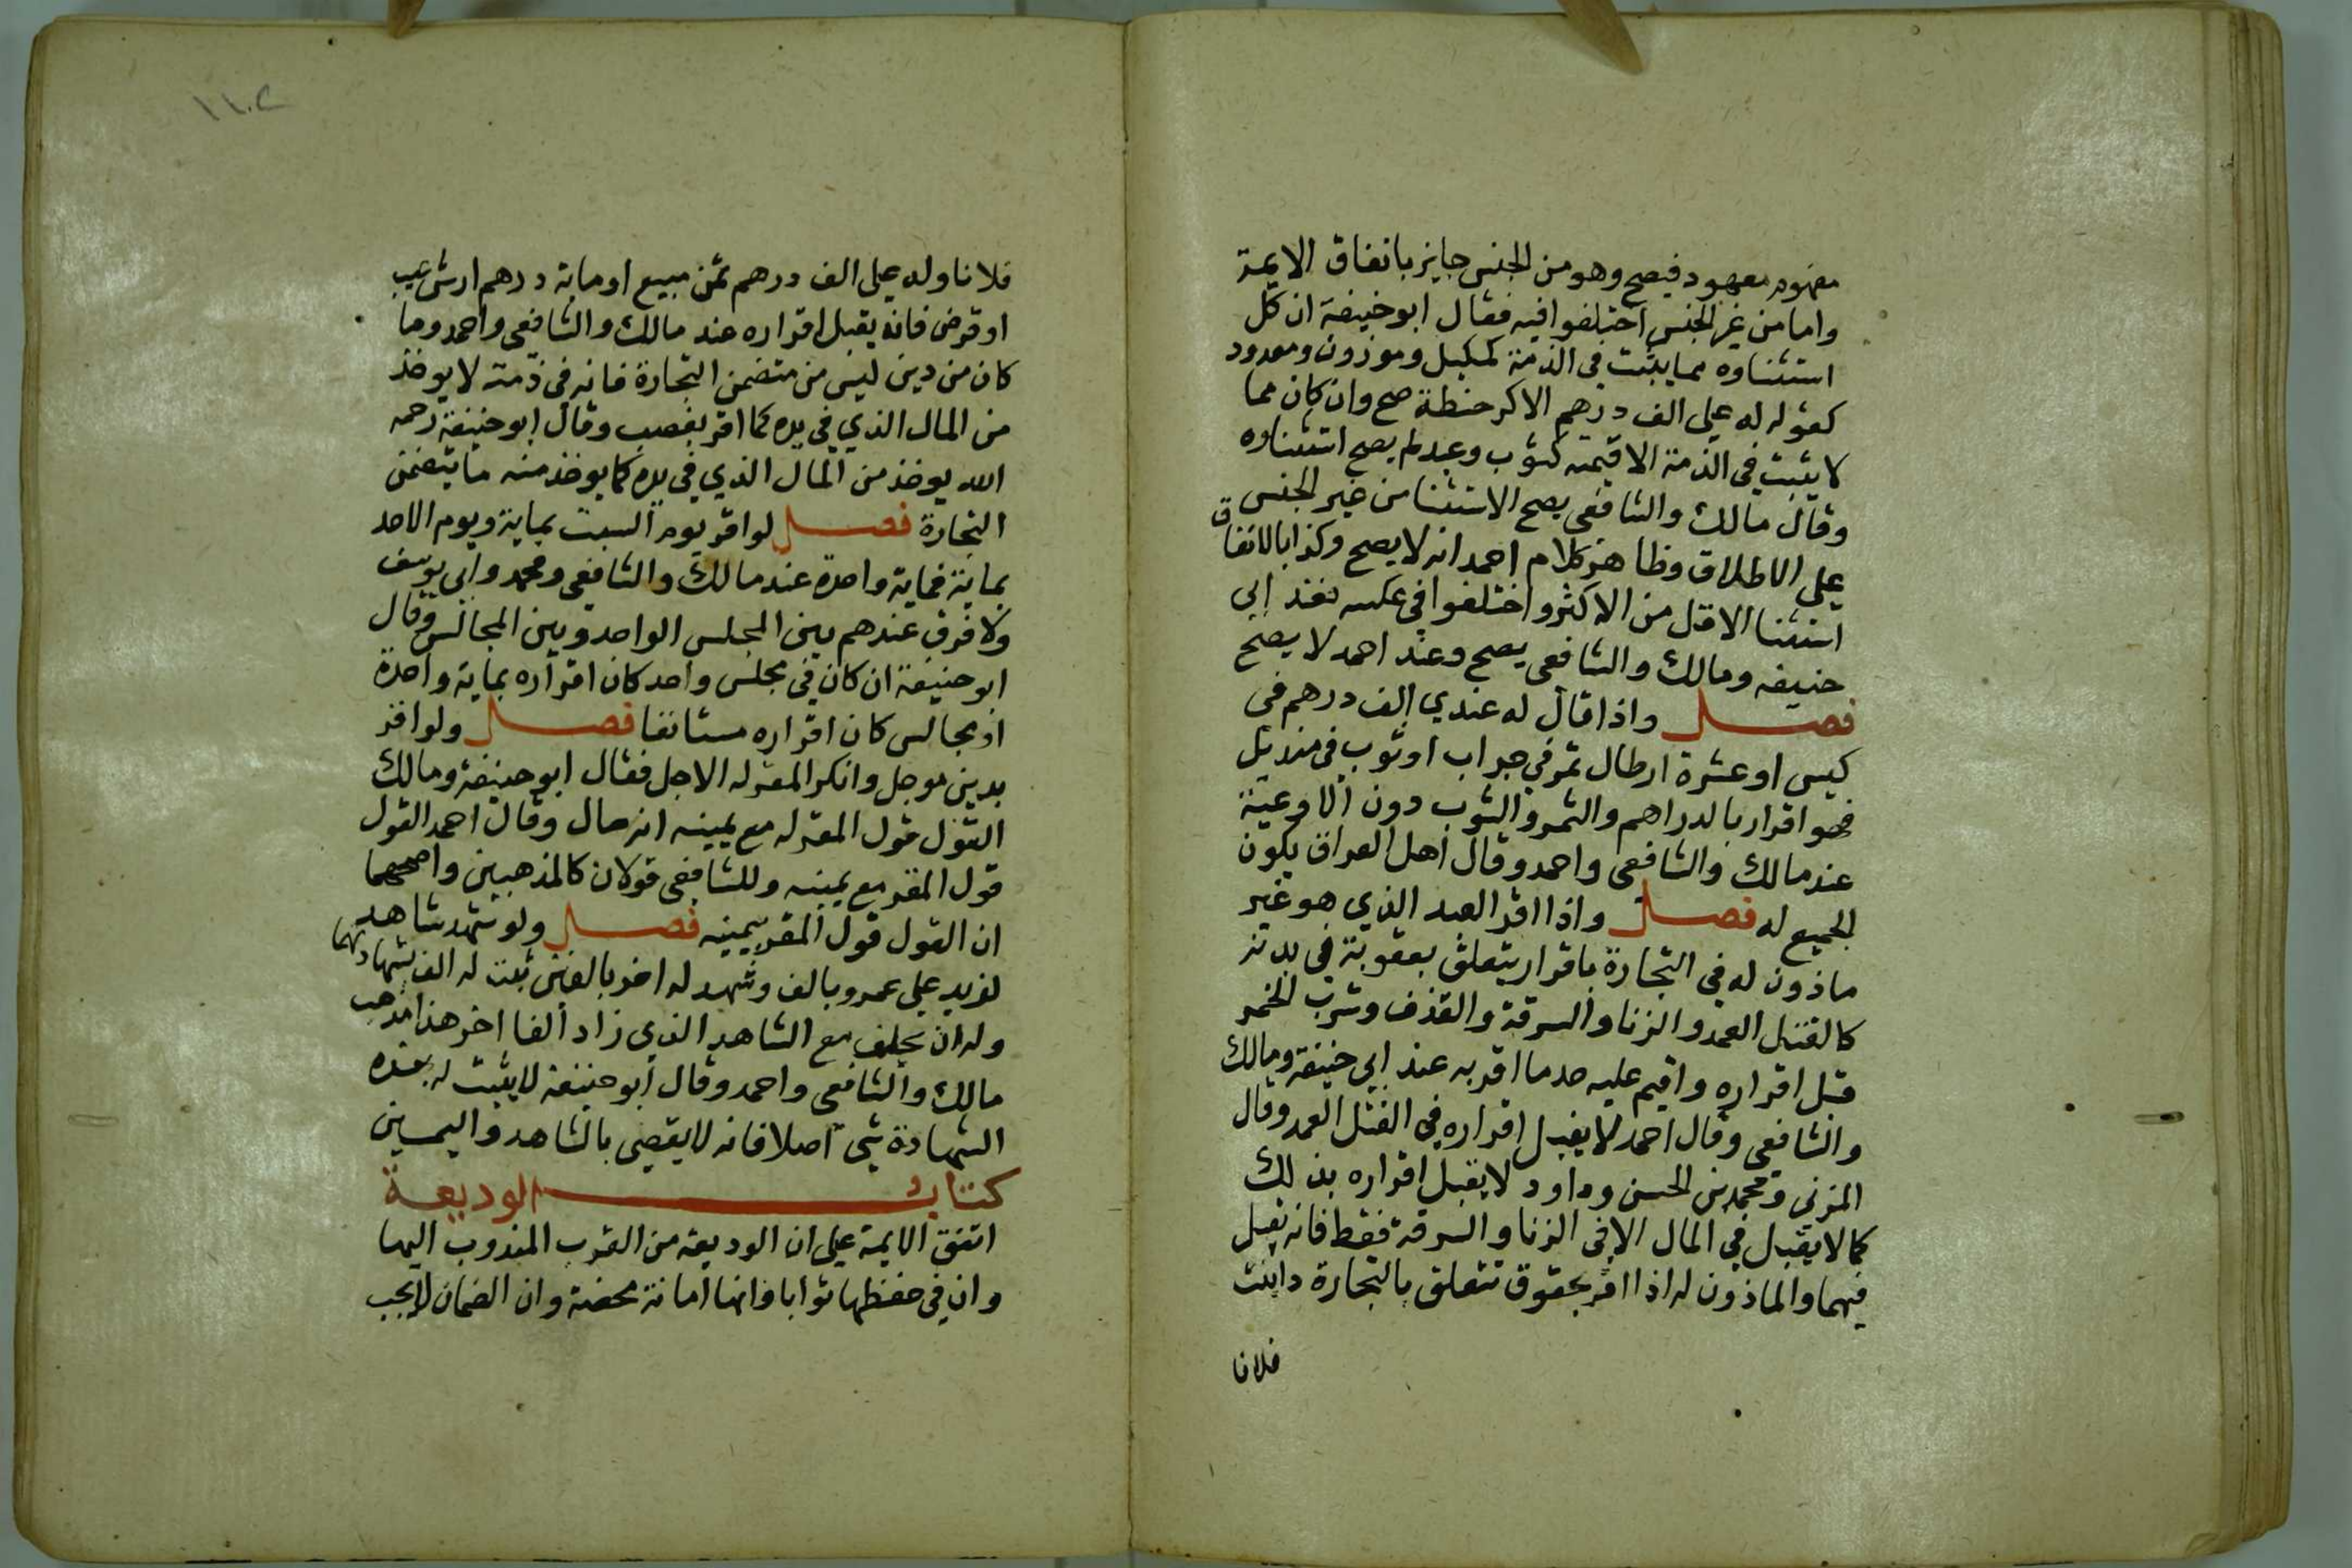 مفهوم معهود فيصح وهو من الجنس جايز باتفاق الايمة
واما من غير الجنس اختلفوا فيه فقال ابو حنيفة ان كل
استثناوه مما يثبت في الذمة كمكيل وموزون ومعدود
كقوله له علي الف درهم الا كر حنطة صح وان كان مما
لا يثبت في الذمة الا قيمته كثوب وعبد لم يصح استثناوه
وقال مالك والشافعي يصح الاستثنا من غير الجنس
علي الاطلاق وظاهر كلام احمد انه لا يصح وكذا بالاتفاق
استثنا الاقل من الاكثر واختلفوا في عكسه فعند ابي
حنيفه ومالك والشافعي يصح وعند احمد لا يصح
فصل واذا قال له عندي الف درهم في
كيس او عشرة ارطال تمر في جراب او ثوب في منديل
فهو اقرار بالدراهم والتمر والثوب دون الاوعية
عند مالك والشافعي واحمد وقال اهل العراق يكون
الجميع له فصل واذا اقر العبد الذي هو غير
ماذون له في التجارة باقرار يتعلق بعقوبة في بدنه
كالقتل العمد والزنا والسرقة والقذف وشرب الخمر
قبل اقراره واقيم عليه حد ما اقر به عند ابي حنيفة ومالك
والشافعي وقال احمد لا يقبل اقراره في القتل العمد وقال
المزني ومحمد بن الحسن وداود لا يقبل اقراره بذلك
كما لا يقبل في المال الا في الزنا والسرقة فقط فانه يقبل
فيهما والماذون له اذا اقر بحقوق تتعلق بالتجارة داينت
فلانا
١١٠٢
فلانا وله علي الف درهم ثمن مبيع او ماية درهم ارش عيب
او قرض فانه يقبل اقراره عند مالك والشافعي واحمد وما
كان من دين ليس من متضمن التجارة فانه في ذمته لا يوخذ
من المال الذي في يده كما اقر بغصب وقال ابو حنيفة رحمه
الله يوخذ من المال الذي في يده كما يوخذ منه ما يتضمن
التجارة فصل لو اقر يوم السبت بماية ويوم الاحد
بماية فماية واحدة عند مالك والشافعي ومحمد وابي يوسف
ولا فرق عندهم بين المجلس الواحد وبين المجالس وقال
ابو حنيفة ان كان في مجلس واحد كان اقراره بماية واحدة
او مجالس كان اقراره مستانفا فصل ولو اقر
بدين موجل وانكر المقر له الاجل فقال ابو حنيفة ومالك
القول قول المقر له مع يمينه انه حال وقال احمد القول
قول المقر مع يمينه وللشافعي قولان كالمذهبين واصحهما
ان القول قول المقر بيمينه فصل ولو شهد شاهد
لزيد علي عمرو بالف وشهد له اخر بالفين ثبت له الف بشهادتهما
وله ان يحلف مع الشاهد الذي زاد الفا اخر هذا مذهب
مالك والشافعي واحمد وقال ابو حنيفة لا يثبت له بهذه
الشهادة شي اصلا فانه لا يقضي بالشاهد واليمين
كتاب الوديعة
اتفق الايمة علي ان الوديعه من القرب المندوب اليها
وان في حفظها ثوابا وانها امانة محضة وان الضمان لا يجب